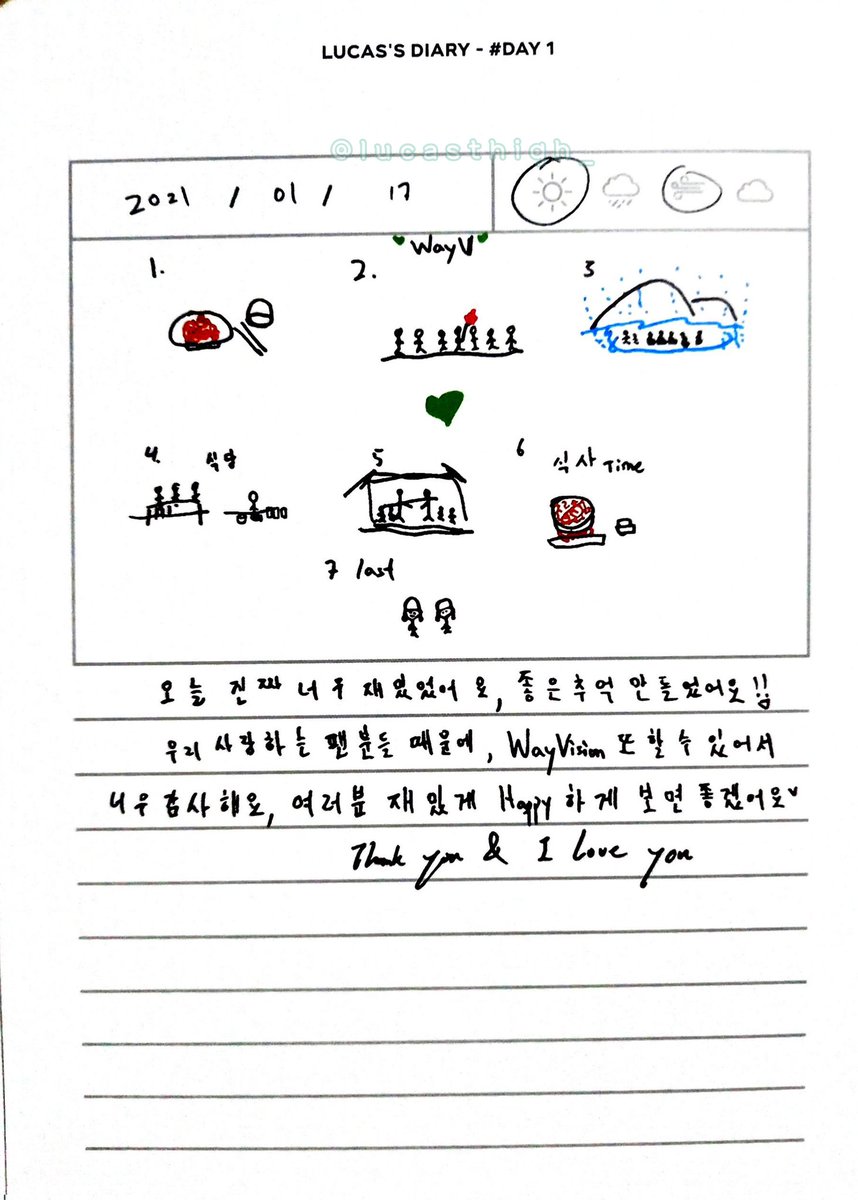 LUCAS'S DIARY - #DAY 1
@lucasthigh_
2021 / 01 / 17
WayV
1.
2.
3
4. 식당
5
6 식사 Time
7 last
오늘 진짜 너무 재밌었어요, 좋은추억 만들었어요!!
우리 사랑하는 팬분들 때문에, WayVision 또 할 수 있어서
너무 감사해요, 여러분 재밌게 Happy 하게 보면 좋겠어요
Thank you & I love you